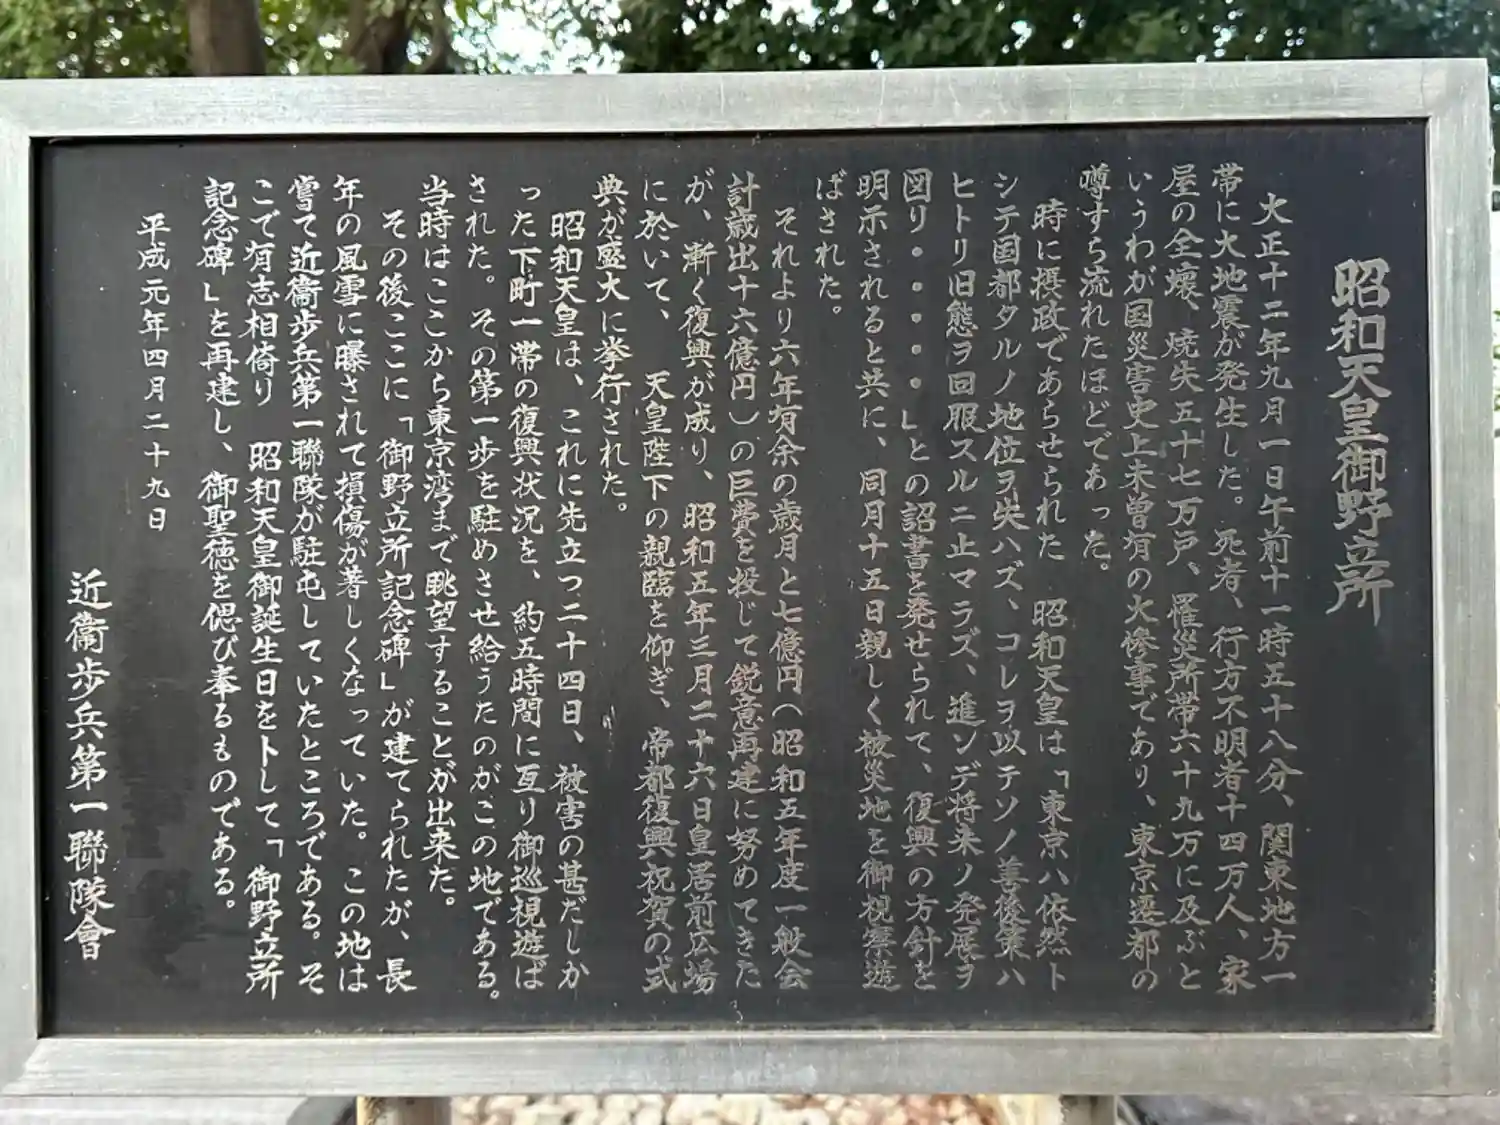 昭和天皇御野立所
大正十二年九月一日午前十一時五十八分、関東地方一
帯に大地震が発生した。死者、行方不明者十四万人、家
屋の全壊、焼失五十七万戸、罹災所帯六十九万に及ぶと
いうわが国災害史上未曽有の大惨事であり、東京遷都の
噂すら流れたほどであった。
時に摂政であらせられた　昭和天皇は「東京ハ依然ト
シテ国都タルノ地位ヲ失ハズ、コレヲ以テソノ善後策ハ
ヒトリ旧態ヲ回服スルニ止マラズ、進ンデ将来ノ発展ヲ
図リ・・・・・」との詔書を発せられて、復興の方針を
明示されると共に、同月十五日親しく被災地を御視察遊
ばされた。
それより六年有余の歳月と七億円（昭和五年度一般会
計歳出十六億円）の巨費を投じて鋭意再建に努めてきた
が、漸く復興が成り、昭和五年三月二十六日皇居前広場
に於いて、　天皇陛下の親臨を仰ぎ、帝都復興祝賀の式
典が盛大に挙行された。
昭和天皇は、これに先立つ二十四日、被害の甚だしか
った下町一帯の復興状況を、約五時間に亙り御巡視遊ば
された。その第一歩を駐めさせ給うたのがこの地である。
当時はここから東京湾まで眺望することが出来た。
その後ここに「御野立所記念碑」が建てられたが、長
年の風雪に曝されて損傷が著しくなっていた。この地は
嘗て近衞歩兵第一聯隊が駐屯していたところである。そ
こで有志相倚り　昭和天皇御誕生日を卜して「御野立所
記念碑」を再建し、御聖徳を偲び奉るものである。
平成元年四月二十九日
近衞歩兵第一聯隊會